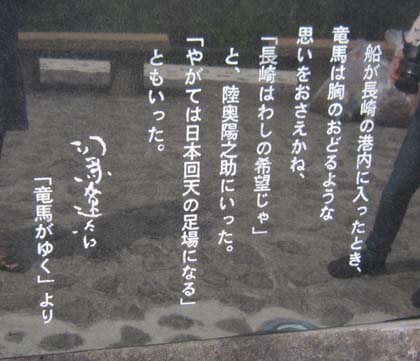 船が長崎の港内に入ったとき、
竜馬は胸のおどるような
思いをおさえかね、
「長崎はわしの希望じゃ」
と、陸奥陽之助にいった。
「やがては日本回天の足場になる」
ともいった。
司馬遼太郎
「竜馬がゆく」より